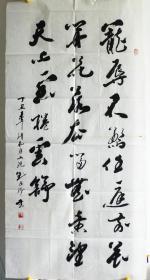 寵辱不驚任庭前花
开花落去留無意望
天上雲捲雲舒
丁丑年